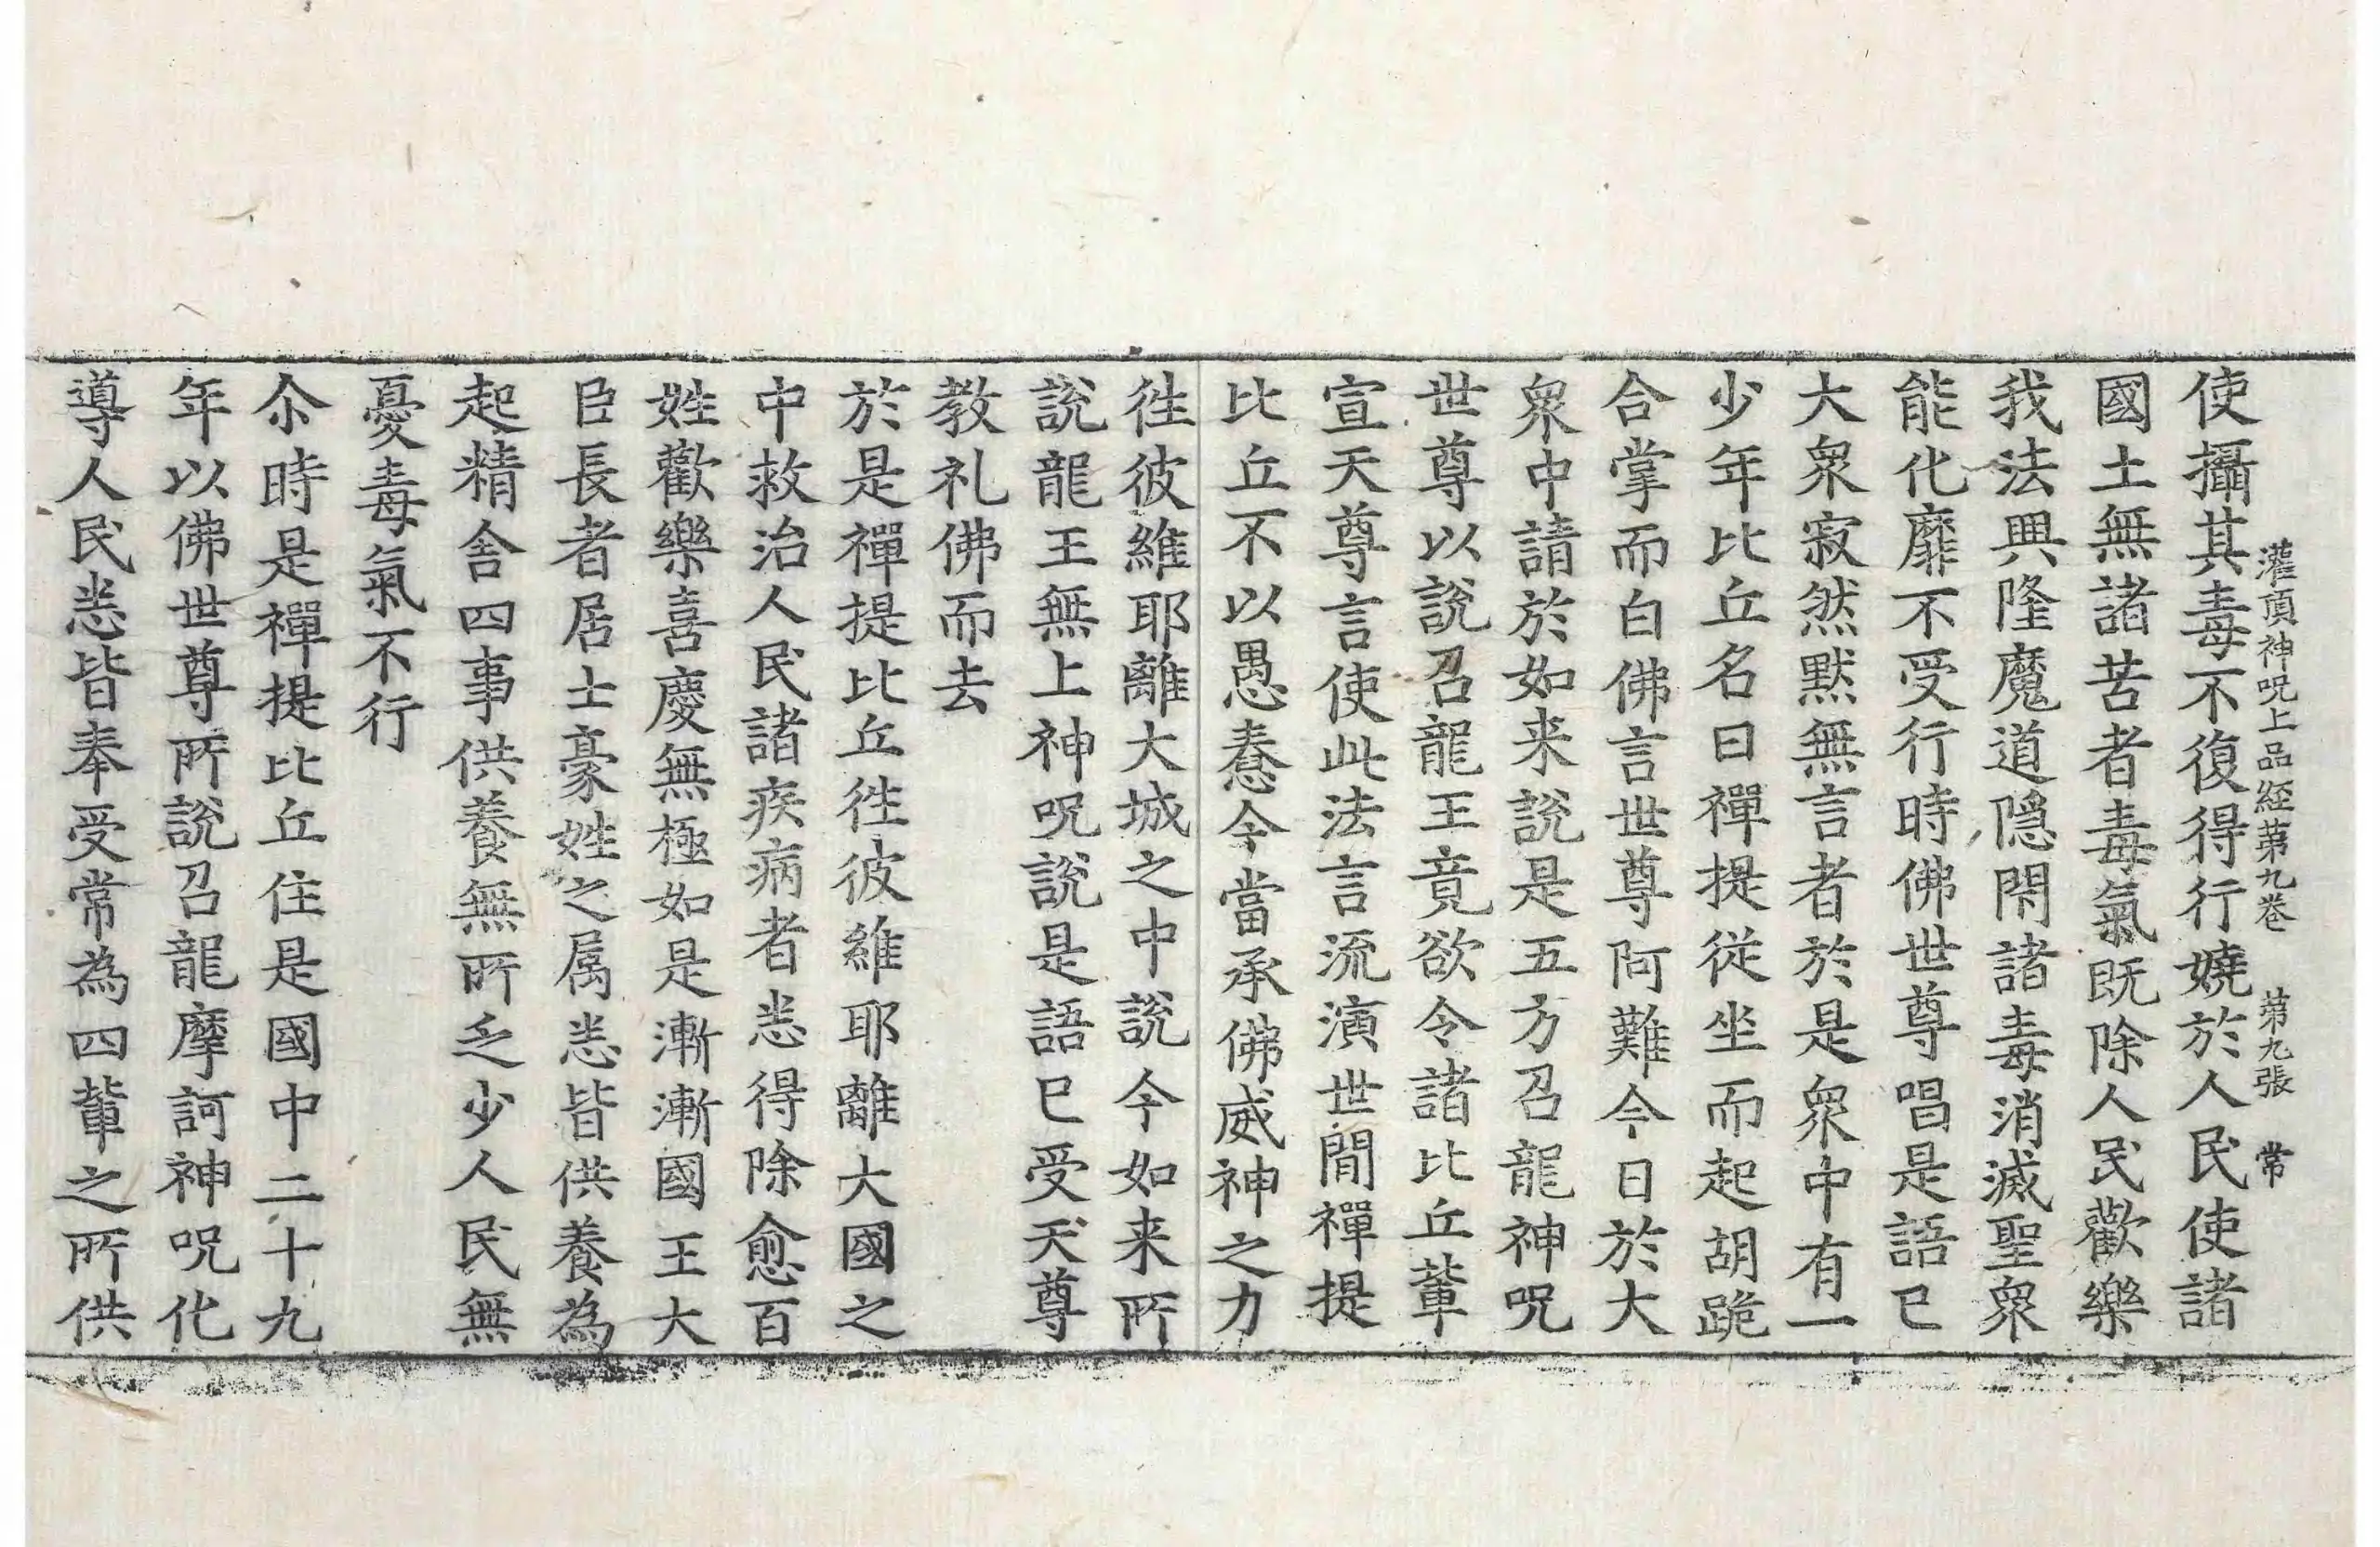 灌頂神呪上品経苐九巻　苐九張　常
使攝其毒不復得行嬈於人民使諸
國土無諸苦者毒氣既除人民歡樂
我法興隆魔道隠閇諸毒消滅聖衆
能化靡不受行時佛世尊唱是語已
大衆寂然黙無言者於是衆中有一
少年比丘名曰禪提従坐而起胡跪
合掌而白佛言世尊阿難今日於大
衆中請於如来說是五方召龍神呪
世尊以說召龍王竟欲令諸比丘軰
宣天尊言使此法言流演世間禪提
比丘不以愚憃今當承佛威神之力
徃彼維耶離大城之中說今如来所
說龍王無上神呪說是語已受天尊
教礼佛而去
於是禪提比丘徃彼維耶離大國之
中救治人民諸疾病者悉得除愈百
姓歡樂喜慶無極如是漸漸國王大
臣長者居士豪姓之属悉皆供養為
起精舍四事供養無所乏少人民無
憂毒氣不行
尒時是禪提比丘住是國中二十九
年以佛世尊所說召龍摩訶神呪化
導人民悉皆奉受常為四軰之所供